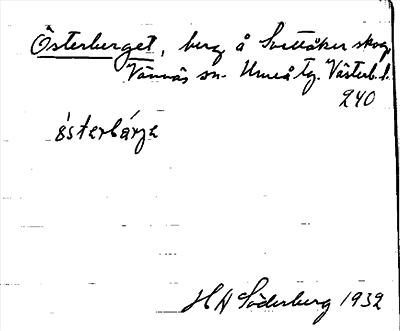 Österberget, berg å Svettåker skog,
Vännäs sn. Umeå tg. Västerb. l.
240
österbärje
H A Söderberg 1932